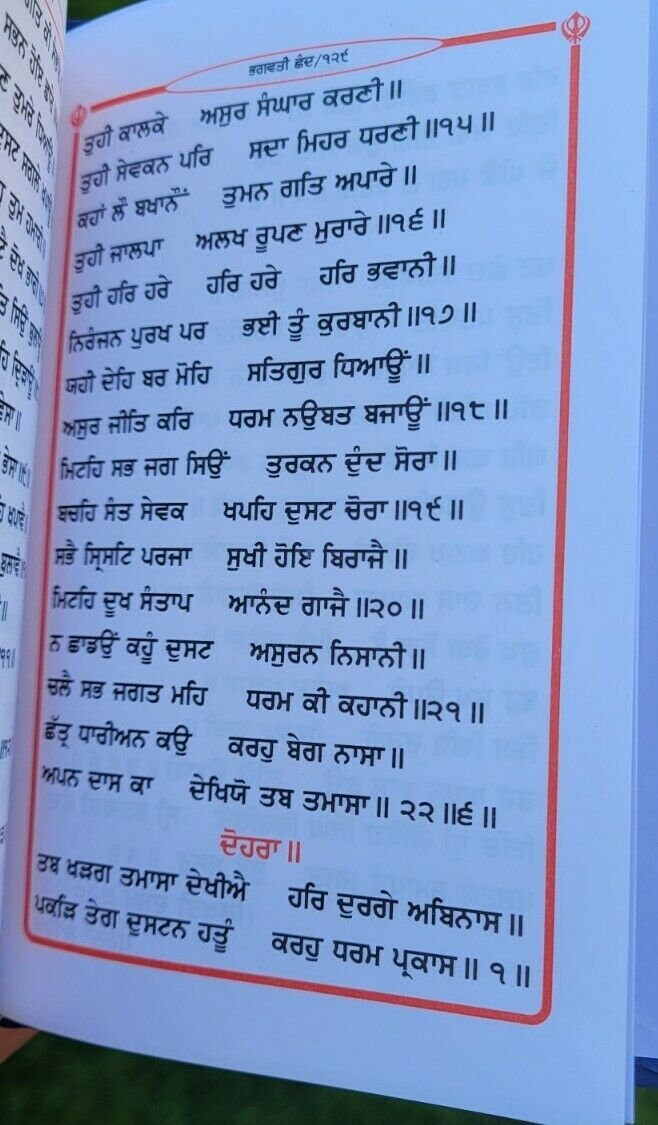 ਭਗਵਤੀ ਛੰਦ/੧੨੯
ਤੁਹੀ ਕਾਲਕੇ ਅਸੁਰ ਸੰਘਾਰ ਕਰਣੀ॥
ਤੁਹੀ ਸੇਵਕਨ ਪਰਿ ਸਦਾ ਮਿਹਰ ਧਰਣੀ॥੧੫॥
ਕਹਾਂ ਲੌ ਬਖਾਨੌਂ ਤੁਮਨ ਗਤਿ ਅਪਾਰੇ॥
ਤੁਹੀ ਜਾਲਪਾ ਅਲਖ ਰੂਪਣ ਮੁਰਾਰੇ॥੧੬॥
ਤੁਹੀ ਹਰਿ ਹਰੇ ਹਰਿ ਹਰੇ ਹਰਿ ਭਵਾਨੀ॥
ਨਿਰੰਜਨ ਪੁਰਖ ਪਰ ਭਈ ਤੂੰ ਕੁਰਬਾਨੀ॥੧੭॥
ਯਹੀ ਦੇਹਿ ਬਰ ਮੋਹਿ ਸਤਿਗੁਰ ਧਿਆਊਂ॥
ਅਸੁਰ ਜੀਤਿ ਕਰਿ ਧਰਮ ਨਉਬਤ ਬਜਾਊਂ॥੧੮॥
ਮਿਟਹਿ ਸਭ ਜਗ ਸਿਉਂ ਤੁਰਕਨ ਦੁੰਦ ਸੋਰਾ॥
ਬਚਹਿ ਸੰਤ ਸੇਵਕ ਖਪਹਿ ਦੁਸਟ ਚੋਰਾ॥੧੯॥
ਸਭੈ ਸ੍ਰਿਸਟਿ ਪਰਜਾ ਸੁਖੀ ਹੋਇ ਬਿਰਾਜੈ॥
ਮਿਟਹਿ ਦੂਖ ਸੰਤਾਪ ਆਨੰਦ ਗਾਜੈ॥੨੦॥
ਨ ਛਾਡਉਂ ਕਹੂੰ ਦੁਸਟ ਅਸੁਰਨ ਨਿਸਾਨੀ॥
ਚਲੈ ਸਭ ਜਗਤ ਮਹਿ ਧਰਮ ਕੀ ਕਹਾਨੀ॥੨੧॥
ਛੱਤ੍ਰ ਧਾਰੀਅਨ ਕਉ ਕਰਹੁ ਬੇਗ ਨਾਸਾ॥
ਅਪਨ ਦਾਸ ਕਾ ਦੇਖਿਯੋ ਤਬ ਤਮਾਸਾ॥ ੨੨॥੬॥
ਦੋਹਰਾ॥
ਤਬ ਖੜਗ ਤਮਾਸਾ ਦੇਖੀਐ ਹਰਿ ਦੁਰਗੇ ਅਬਿਨਾਸ॥
ਪਕੜਿ ਤੇਗ ਦੁਸਟਨ ਹਤੂੰ ਕਰਹੁ ਧਰਮ ਪ੍ਰਕਾਸ॥ ੧॥